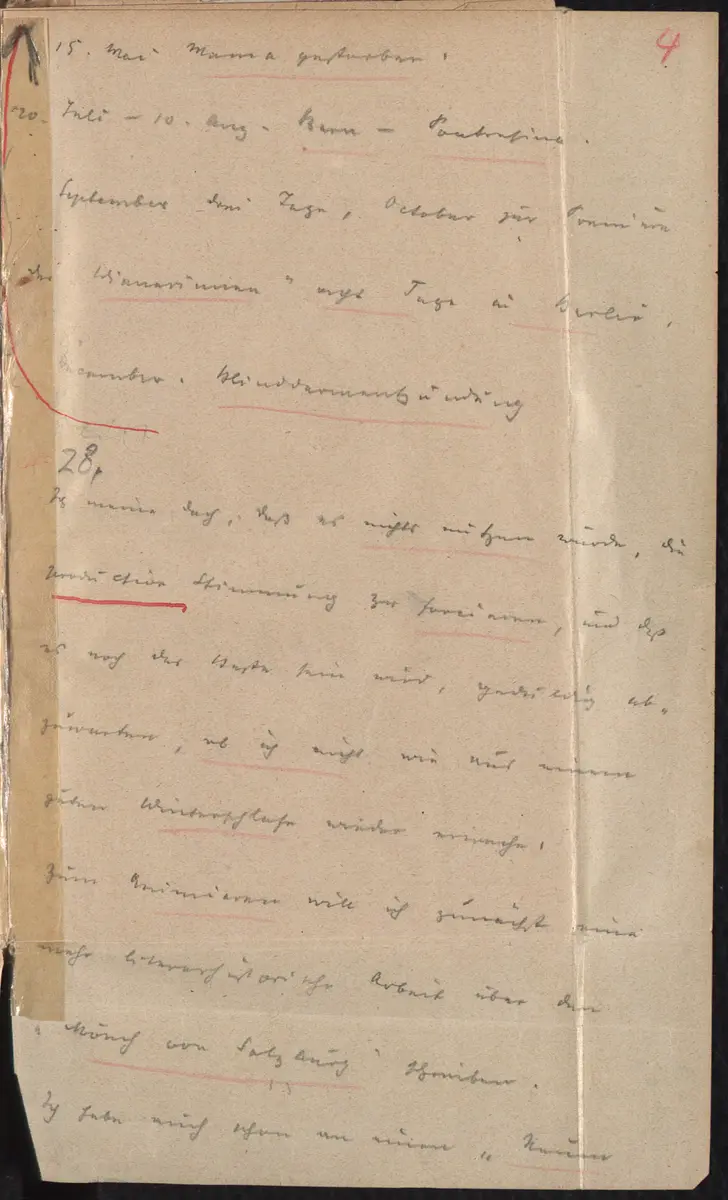 4
15. Mai Mama gestorben.
20. Juli – 10. Aug. Bern – Pontresina.
September drei Tage, October zur Première
der Wienerinnen" acht Tage in Berlin.
December. Blinddarmentzündung
28.
Ich meine doch, daß es nichts nützen würde, die
Production Stimmung zu forcieren, und daß
es noch das Beste sein wird, geduldig ab-
zuwarten, ob ich nicht wie aus einem
guten Winterschlafe wieder erwache.
Zum Animieren will ich zunächst eine
mehr literarhistorische Arbeit über den
„Mönch von Salzburg" schreiben.
Ich habe auch schon an einen „